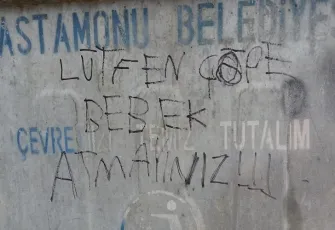 ASTAMONU BELEDİYE
LÜTFEN ÇÖPE
BEBEK
ÇEVRE TUTALIM
ATMAYINIZ!!!